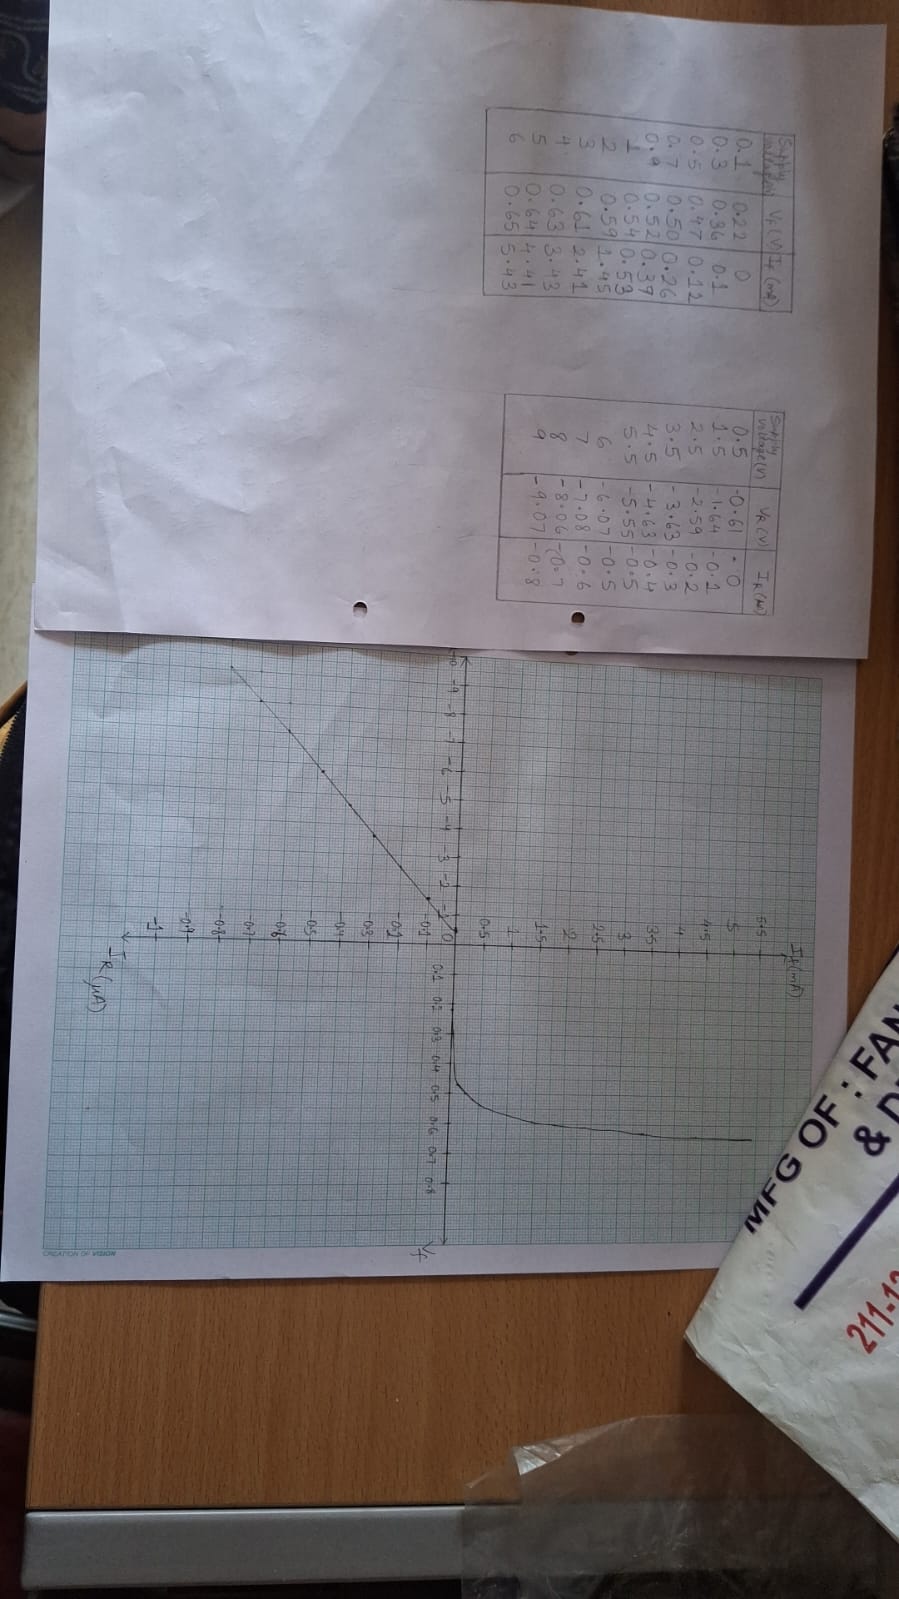 Supply voltage(V) VF(V) IF(mA)
0.1 0.22 0
0.3 0.36 0.1
0.5 0.47 0.12
0.7 0.50 0.26
0.9 0.52 0.39
1 0.54 0.53
2 0.59 1.45
3 0.61 2.41
4 0.63 3.43
5 0.64 4.41
6 0.65 5.43
Supply voltage(V) VR(V) IR(μA)
0.5 -0.61 - 0
1.5 -1.64 -0.1
2.5 -2.59 -0.2
3.5 -3.63 -0.3
4.5 -4.63 -0.4
5.5 -5.55 -0.5
6 -6.07 -0.5
7 -7.08 -0.6
8 -8.06 -0.7
9 -9.07 -0.8
If(mA)
5.5
5
4.5
4
3.5
3
2.5
2
1.5
1
0.5
-10 -9 -8 -7 -6 -5 -4 -3 -2 -1 0 0.1 0.2 0.3 0.4 0.5 0.6 0.7 0.8
Vf
-0.1
-0.2
-0.3
-0.4
-0.5
-0.6
-0.7
-0.8
-0.9
-1
IR(μA)
MFG OF : FAN
&